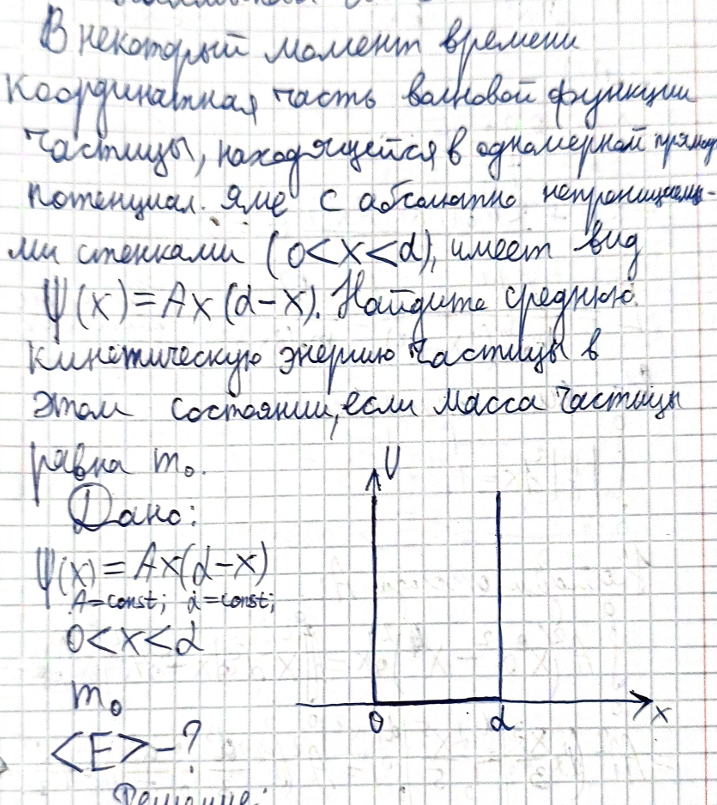 В некоторый момент времени
координатная часть волновой функции
частицы, находящейся в одномерной прямоу
потенциал. яме с абсолютно непроницаемы-
ми стенками (0<x<d), имеет вид
ψ(x)=Ax(d-x). Найдите среднюю
кинетическую энергию частицы в
этом состоянии, если масса частицы
равна m₀.
U
Дано:
ψ(x)=Ax(d-x)
A=const; d=const;
0<x<d
m₀
0 d x
<E>-?
Решение: